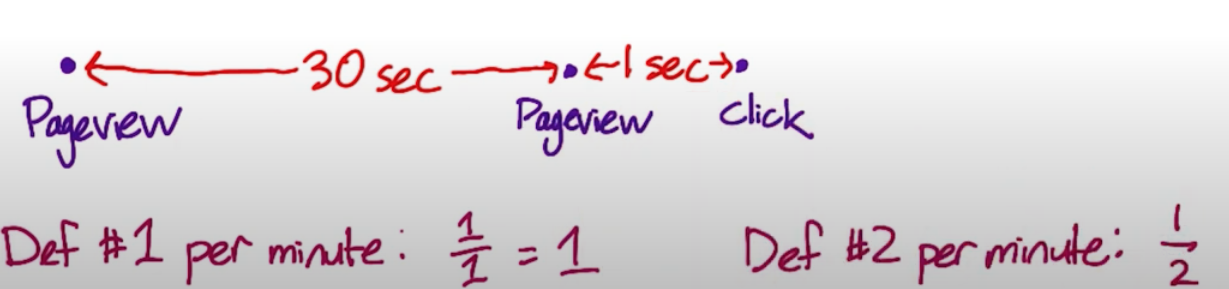 30 sec 1 sec
Pageview Pageview Click
Def #1 per minute: 1/1 = 1 Def #2 per minute: 1/2